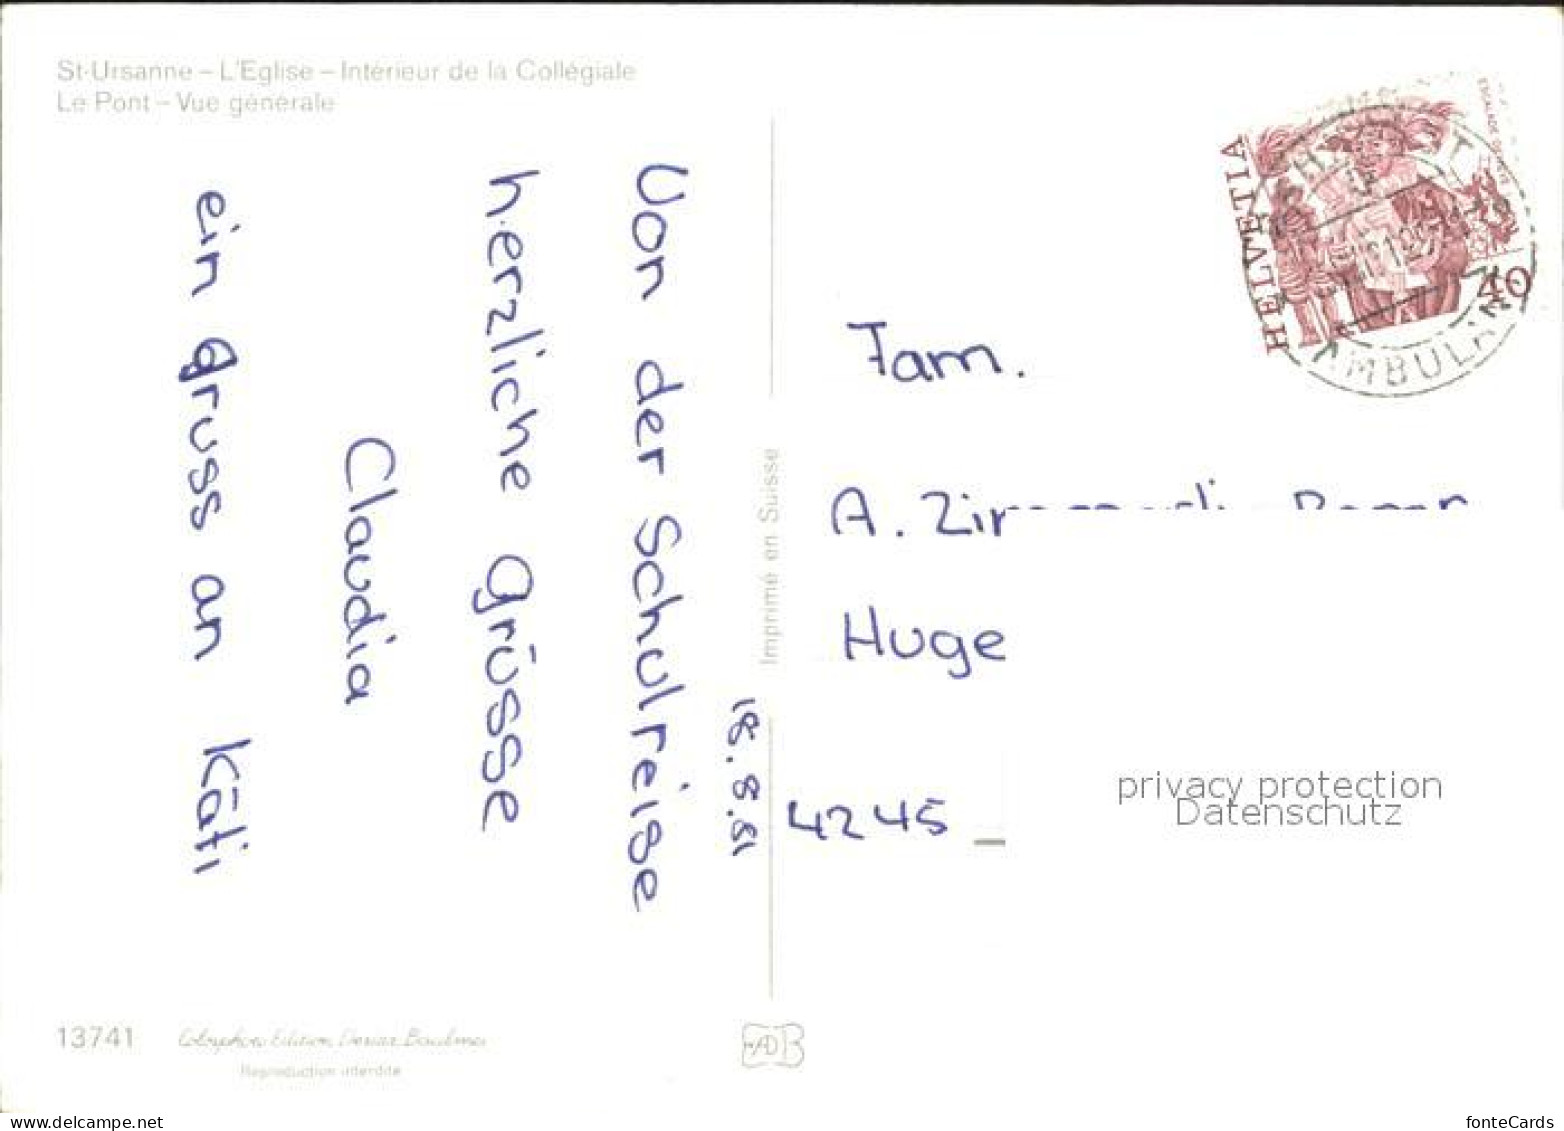 St-Ursanne – L'Eglise – Intérieur de la Collégiale
Le Pont – Vue générale
18.8.81
Von der Schulreise
herzliche Grüsse
Claudia
ein Gruss an Käti
Imprimé en Suisse
HELVETIA
40
AMBULANT
Fam.
A.
Huge
4245
privacy protection
Datenschutz
13741
Reproduction interdite
www.delcampe.net
fonteCards